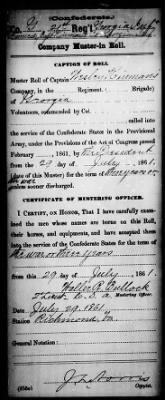 (Confederate.)
Co. G, 21st Reg't Georgia Inf'y
Company Muster-In Roll.
CAPTION OF ROLL
Muster Roll of Captain
Company, Regiment, Brigade)
of Georgia
Volunteers, commanded by Col.
called into
the service of the Confederate States in the Provisional
Army, under the Provisions of the Act of Congress passed
February , 1861, by President
from the 29 day of July , 1861.
(date of this Muster) for the term of
unless sooner discharged.
CERTIFICATE OF MUSTERING OFFICER.
I CERTIFY, ON HONOR, That I have carefully examined
the men whose names are borne on this Roll,
their horses, and equipments, and have accepted them
into the service of the Confederate States for the term of
the war or three years
from this 29 day of July , 1861.
C. S. A. Mustering Officer.
Date July 29, 1861
Station Richmond Va.
General Notation:
Copyist.